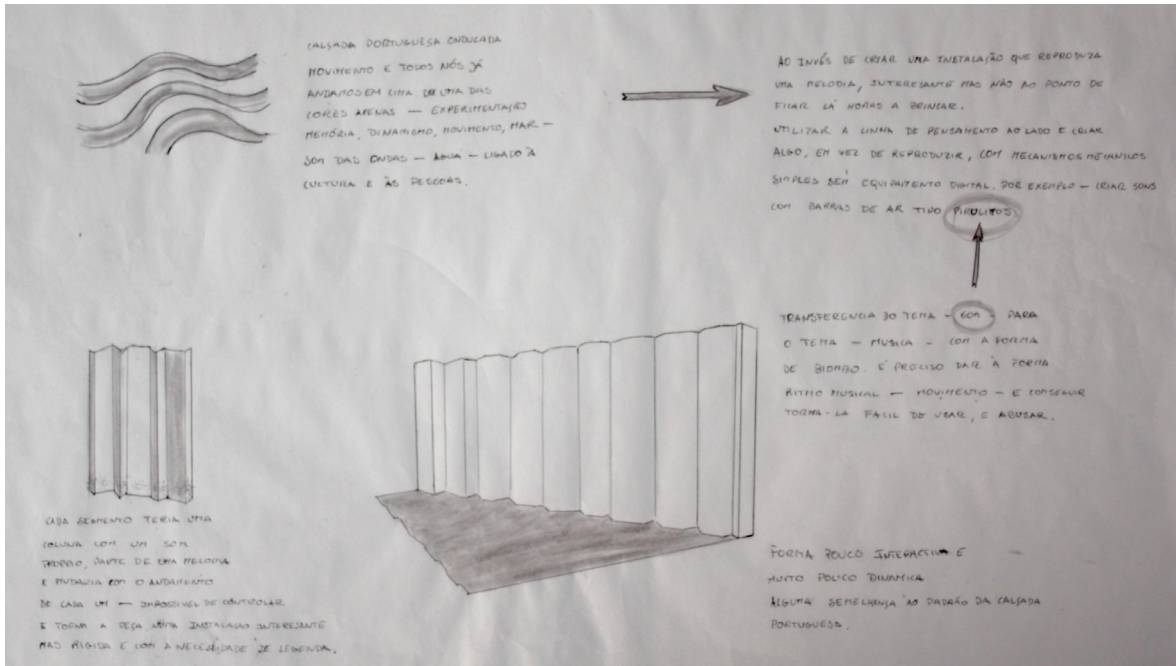 CALSADA PORTUGUESA ONDULADA
MOVIMENTO E TODOS NÓS JÁ
ANDAMOS EM CIMA DE UMA DAS
CORES APENAS — EXPERIMENTAÇÃO
MEMÓRIA, DINAMISMO, MOVIMENTO, MAR —
SOM DAS ONDAS — ÁGUA — LIGADO À
CULTURA E ÀS PESSOAS.
AO INVÉS DE CRIAR UMA INSTALAÇÃO QUE REPRODUZA
UMA MELODIA, INTERESANTE MAS NÃO AO PONTO DE
FICAR LÁ HORAS A BRINCAR.
UTILIZAR A LINHA DE PENSAMENTO AO LADO E CRIAR
ALGO, EM VEZ DE REPRODUZIR, COM MECANISMOS MECANICOS
SIMPLES SEM EQUIPAMENTO DIGITAL. POR EXEMPLO — CRIAR SONS
COM BARRAS DE AR TIPO PIRULITOS
TRANSFERENCIA DO TEMA — SOM — PARA
O TEMA — MUSICA — COM A FORMA
DE BIOMBO. É PRECISO DAR À FORMA
RITMO MUSICAL — MOVIMENTO — E CONSEGUIR
TORNA-LA FACIL DE USAR, E ABUSAR.
CADA SEGMENTO TERIA UMA
COLUNA COM UM SOM
PROPRIO, PARTE DE UMA MELODIA
E MUDARIA COM O ANDAMENTO
DE CADA UM — IMPOSSIVEL DE CONTROLAR
E TORNA A PEÇA NUMA INSTALAÇÃO INTERESANTE
MAS RIGIDA E COM A NECESSIDADE DE LEGENDA.
FORMA POUCO INTERACTIVA E
MUITO POUCO DINAMICA
ALGUMA SEMELHENSA AO PADRÃO DA CALÇADA
PORTUGUESA.